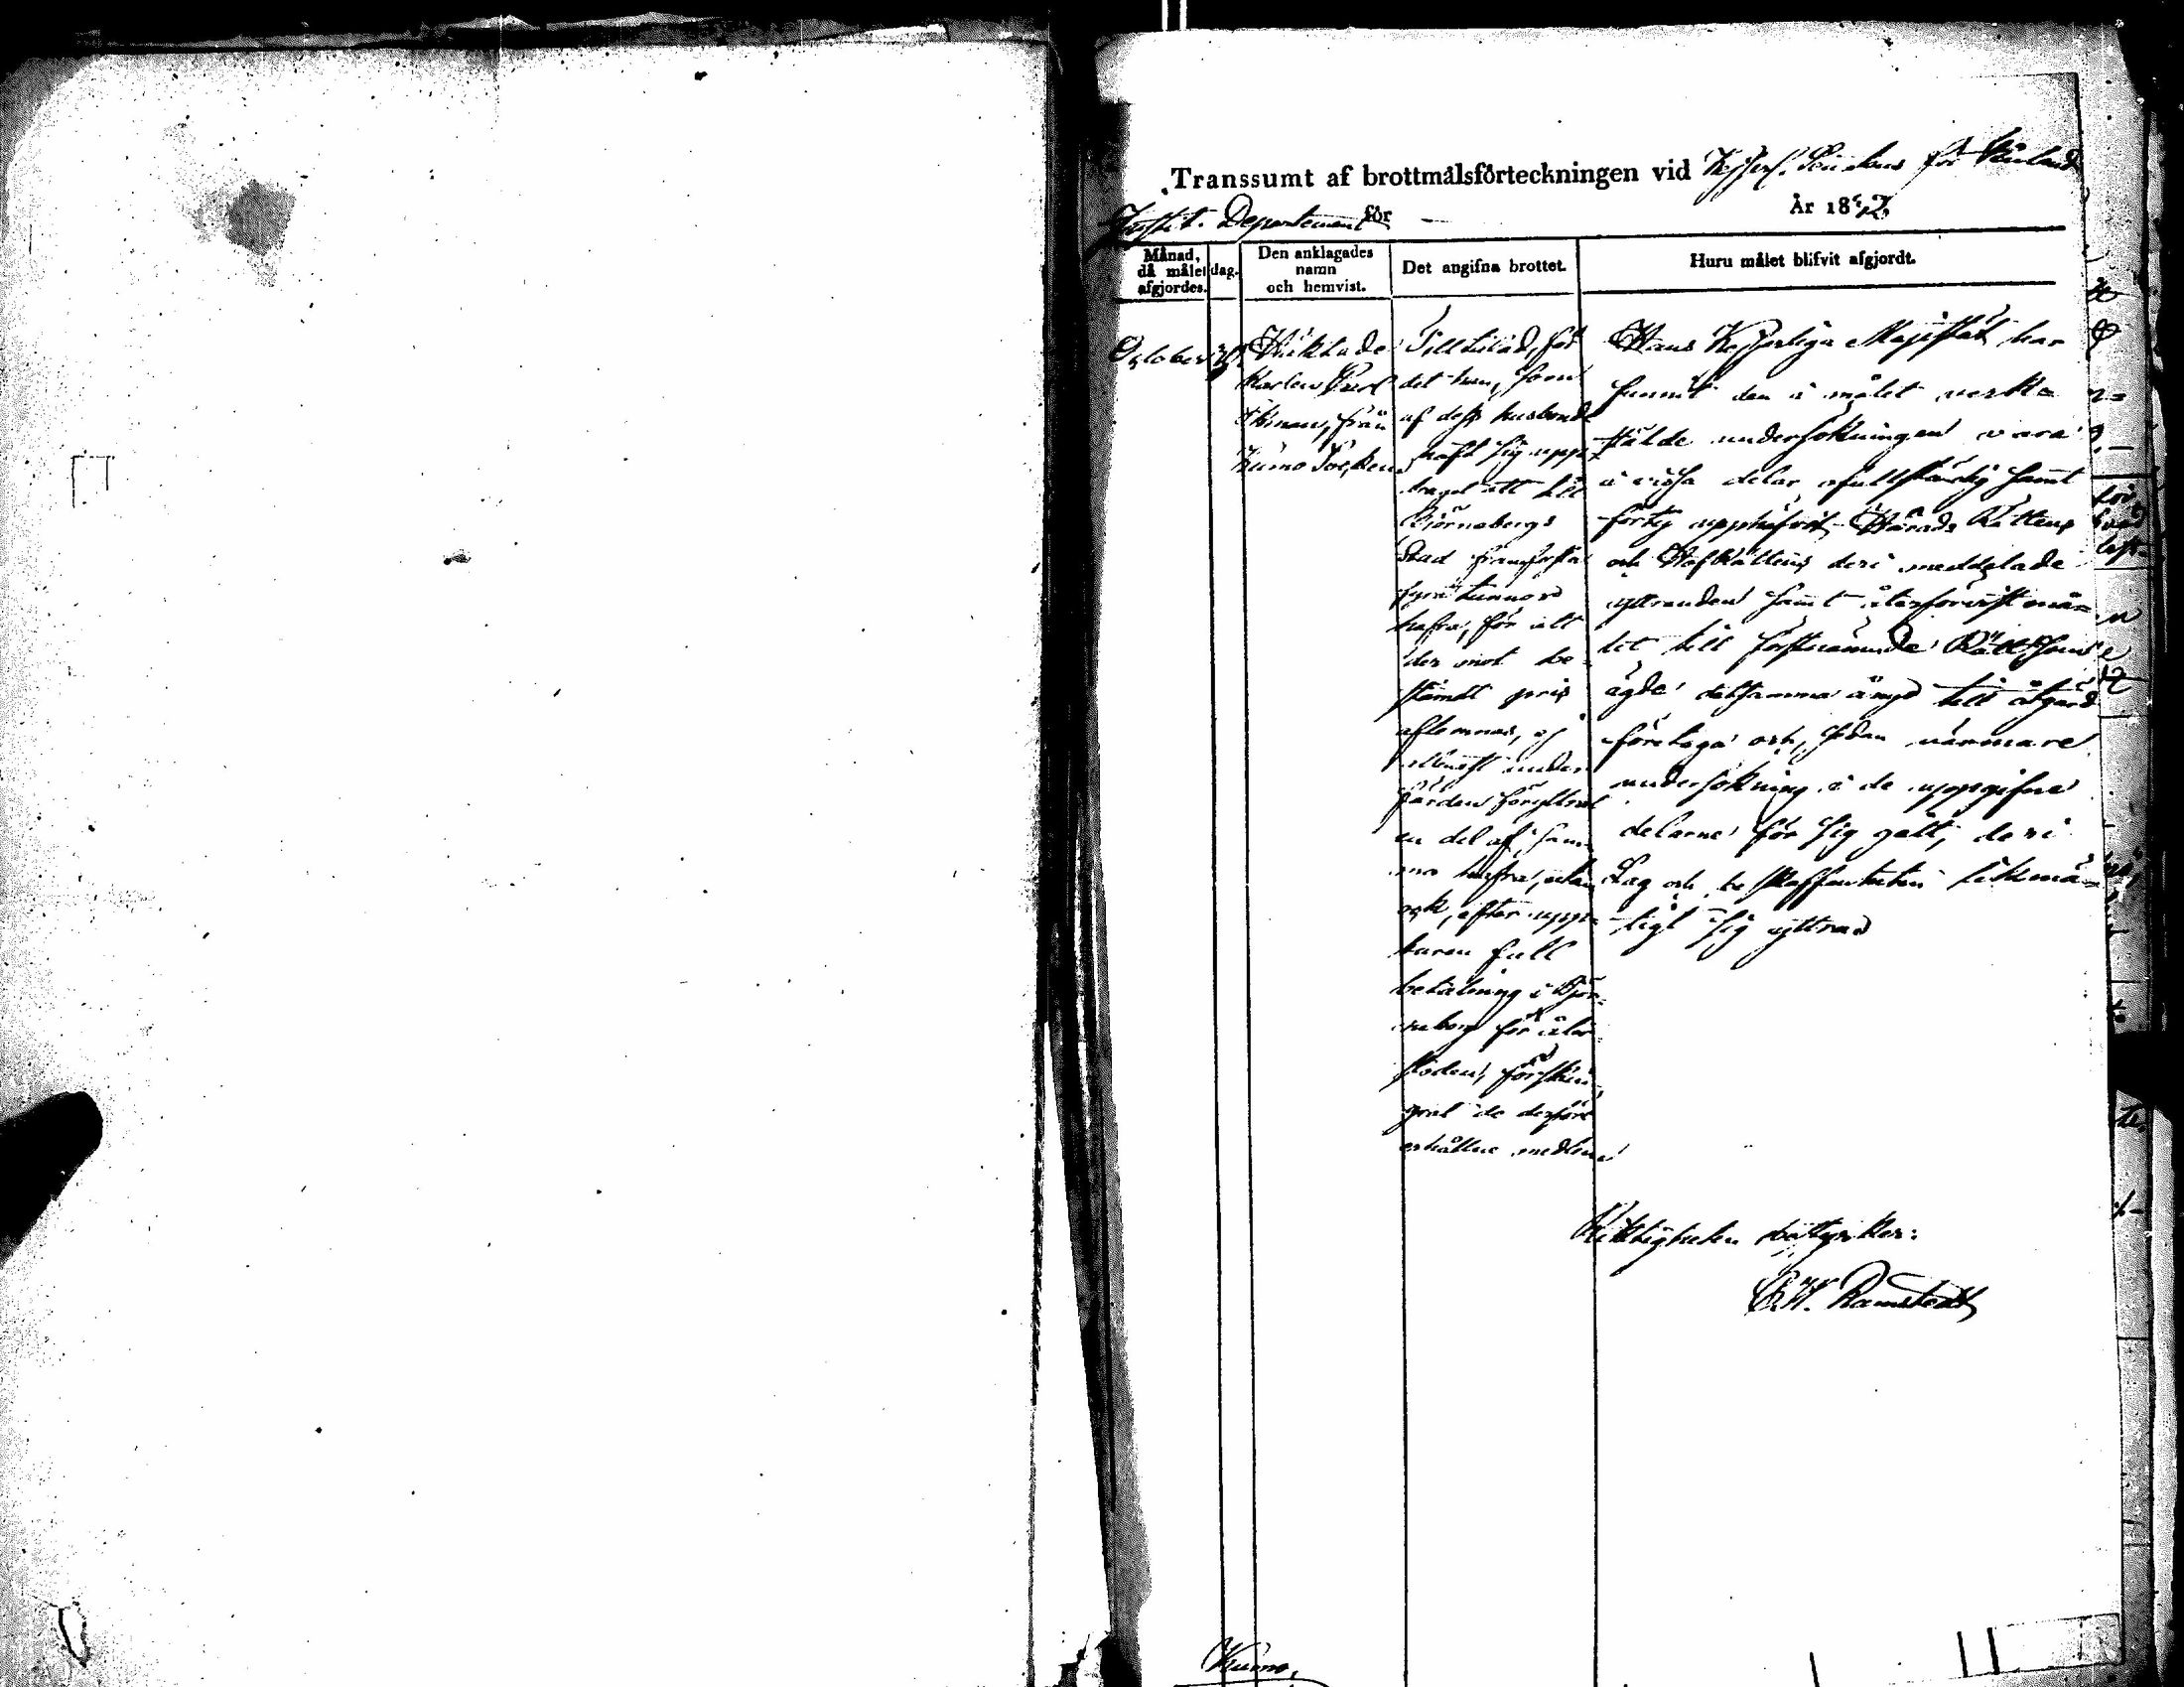 Transsumt af brottmålsförteckningen vid Kejserl. Senatens för Finland
Justit. Departement för - År 1842.
Månad, då målet afgjordes.
dag.
Den anklagades namn och hemvist.
Det angifna brottet.
Huru målet blifvit afgjordt.
October
Karlen
från
Kumo Socken
Tilltalad, för
det han, som
af dess husbonde
haft sig upp=
draget att till
Björneborgs
Stad framforsla
fyra tunnor
hafra, för att
der mot be-
stämdt pris
aflemnas, ej
allenast under
färden föryttrat
en del af sam-
ma hafra, utan
ock, efter upp=
buren full
betalning i Björ=
neborg för åter-
stoden, förskin-
grat de derföre
erhållne medlen
Hans Kejserliga Majestät har
funnit den i målet verk=
stälde undersökningen vara
i vissa delar ofullständig samt
fördy upphäfvit Härads Rättens
och HofRättens deri meddelade
yttranden samt återförvist må=
let till förstnämnde Rätt, som
ägde detsamma ånyo till åtgärd
företaga och, sedan närmare
undersökning i de uppgifne
delarne för sig gått, deri
Lag och beskaffenheten likmä=
tigt sig yttra
Riktigheten bestyrker:
Ramstedt
Kumo.